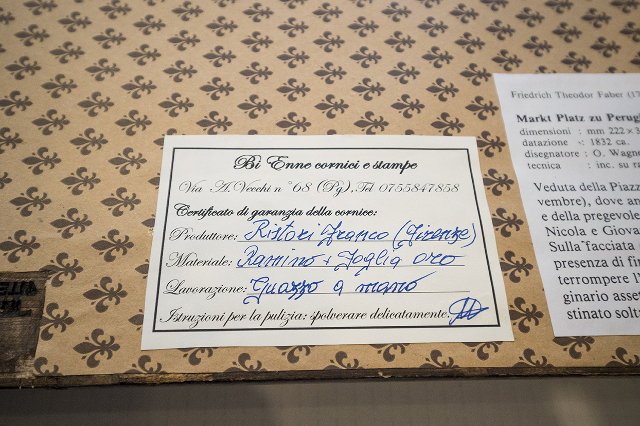 Bi Enne cornici e stampe
Via A. Vecchi n° 68 (Pg), Tel 0755847858
Certificato di garanzia della cornice:
Produttore: Ristori Franco (Firenze)
Materiale: Ramino + Foglia oro
Lavorazione: Guazzo a mano
Istruzioni per la pulizia: spolverare delicatamente.
Friedrich Theodor Faber (17
Markt Platz zu Perug
dimensioni : mm 222 x 3
datazione : 1832 ca.
disegnatore : O. Wagne
tecnica : inc. su ra
Veduta della Piazz
vembre), dove an
e della pregevol
Nicola e Giova
Sulla facciata
presenza di fin
terrompere l'
ginario asse
stinato solt